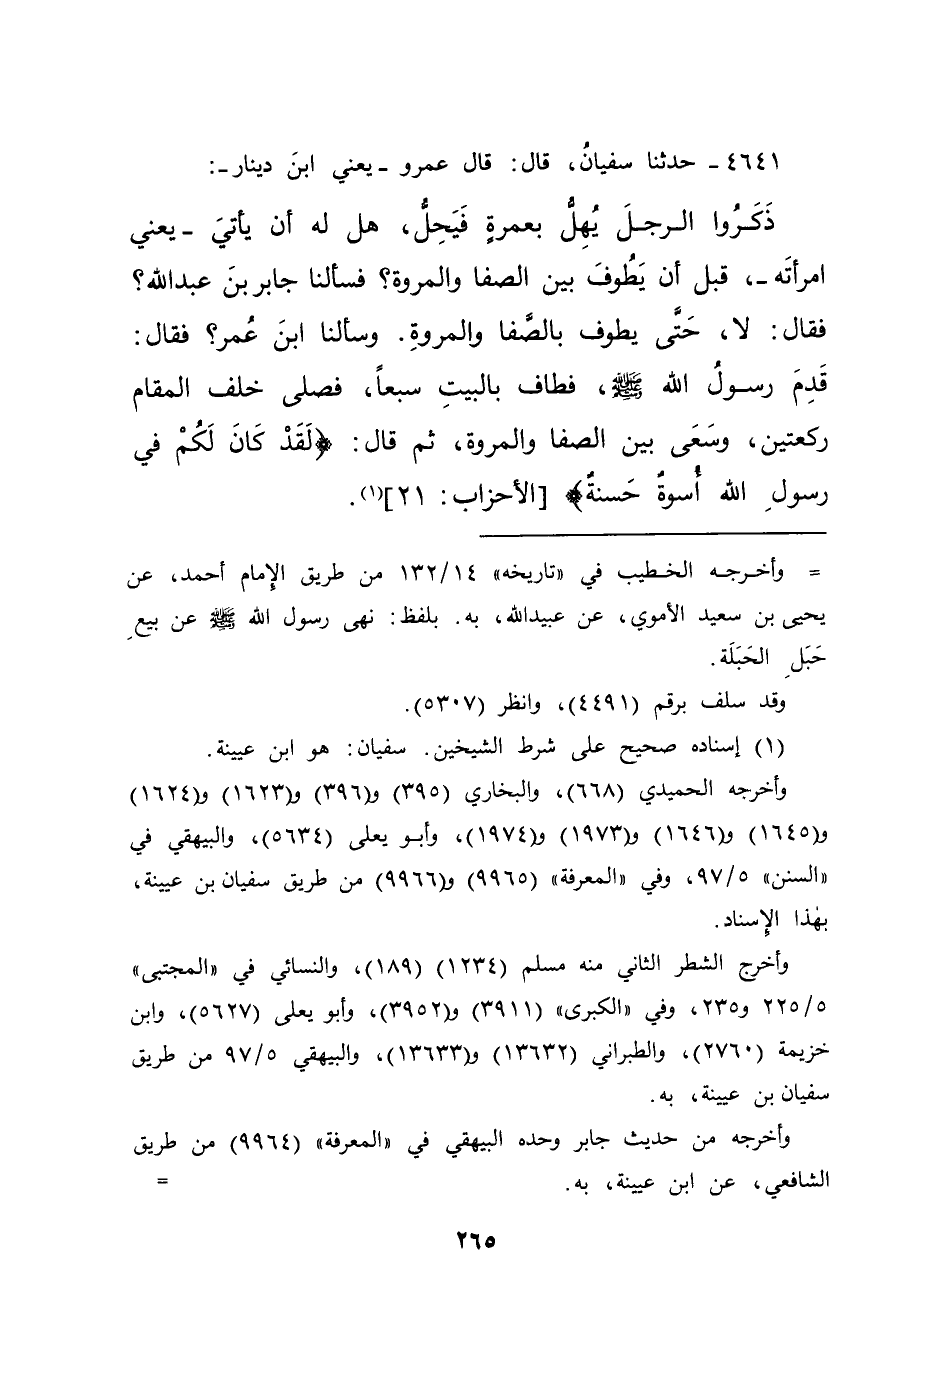 ٤٦٤١ ـ حدثنا سفيانُ، قال: قال عمرو ـ يعني ابنَ دينار ـ:
ذَكَـرُوا الـرجـلَ يُهِلُّ بعمرةٍ فَيَحِلُّ، هل له أن يأتيَ ـ يعني
امرأتَه ـ، قبل أن يَطُوفَ بين الصفا والمروة؟ فسألنا جابر بنَ عبدالله؟
فقال: لا، حَتَّى يطوف بالصَّفا والمروةِ. وسألنا ابنَ عُمر؟ فقال:
قَدِمَ رسـولُ الله ﷺ، فطاف بالبيتِ سبعاً، فصلى خلف المقام
ركعتين، وسَعَى بين الصفا والمروة، ثم قال: ﴿لَقَدْ كَانَ لَكُمْ في
رسولِ الله أُسوةٌ حَسنةٌ﴾ [الأحزاب: ٢١](١).
= وأخـرجـه الخـطيب في «تاريخه» ١٣٢/١٤ من طريق الإمام أحمد، عن
يحيى بن سعيد الأموي، عن عبيدالله، به. بلفظ: نهى رسول الله ﷺ عن بيعِ
حَبَلِ الحَبَلَة.
وقد سلف برقم (٤٤٩١)، وانظر (٥٣٠٧).
(١) إسناده صحيح على شرط الشيخين. سفيان: هو ابن عيينة.
وأخرجه الحميدي (٦٦٨)، والبخاري (٣٩٥) و(٣٩٦) و(١٦٢٣) و(١٦٢٤)
و(١٦٤٥) و(١٦٤٦) و(١٩٧٣) و(١٩٧٤)، وأبـو يعلى (٥٦٣٤)، والبيهقي في
«السنن» ٩٧/٥، وفي «المعرفة» (٩٩٦٥) و(٩٩٦٦) من طريق سفيان بن عيينة،
بهٰذا الإسناد.
وأخرج الشطر الثاني منه مسلم (١٢٣٤) (١٨٩)، والنسائي في «المجتبى»
٢٢٥/٥ و٢٣٥، وفي «الكبرى» (٣٩١١) و(٣٩٥٢)، وأبو يعلى (٥٦٢٧)، وابن
خزيمة (٢٧٦٠)، والطبراني (١٣٦٣٢) و(١٣٦٣٣)، والبيهقي ٩٧/٥ من طريق
سفيان بن عيينة، به.
وأخرجه من حديث جابر وحده البيهقي في «المعرفة» (٩٩٦٤) من طريق
الشافعي، عن ابن عيينة، به. =
٢٦٥